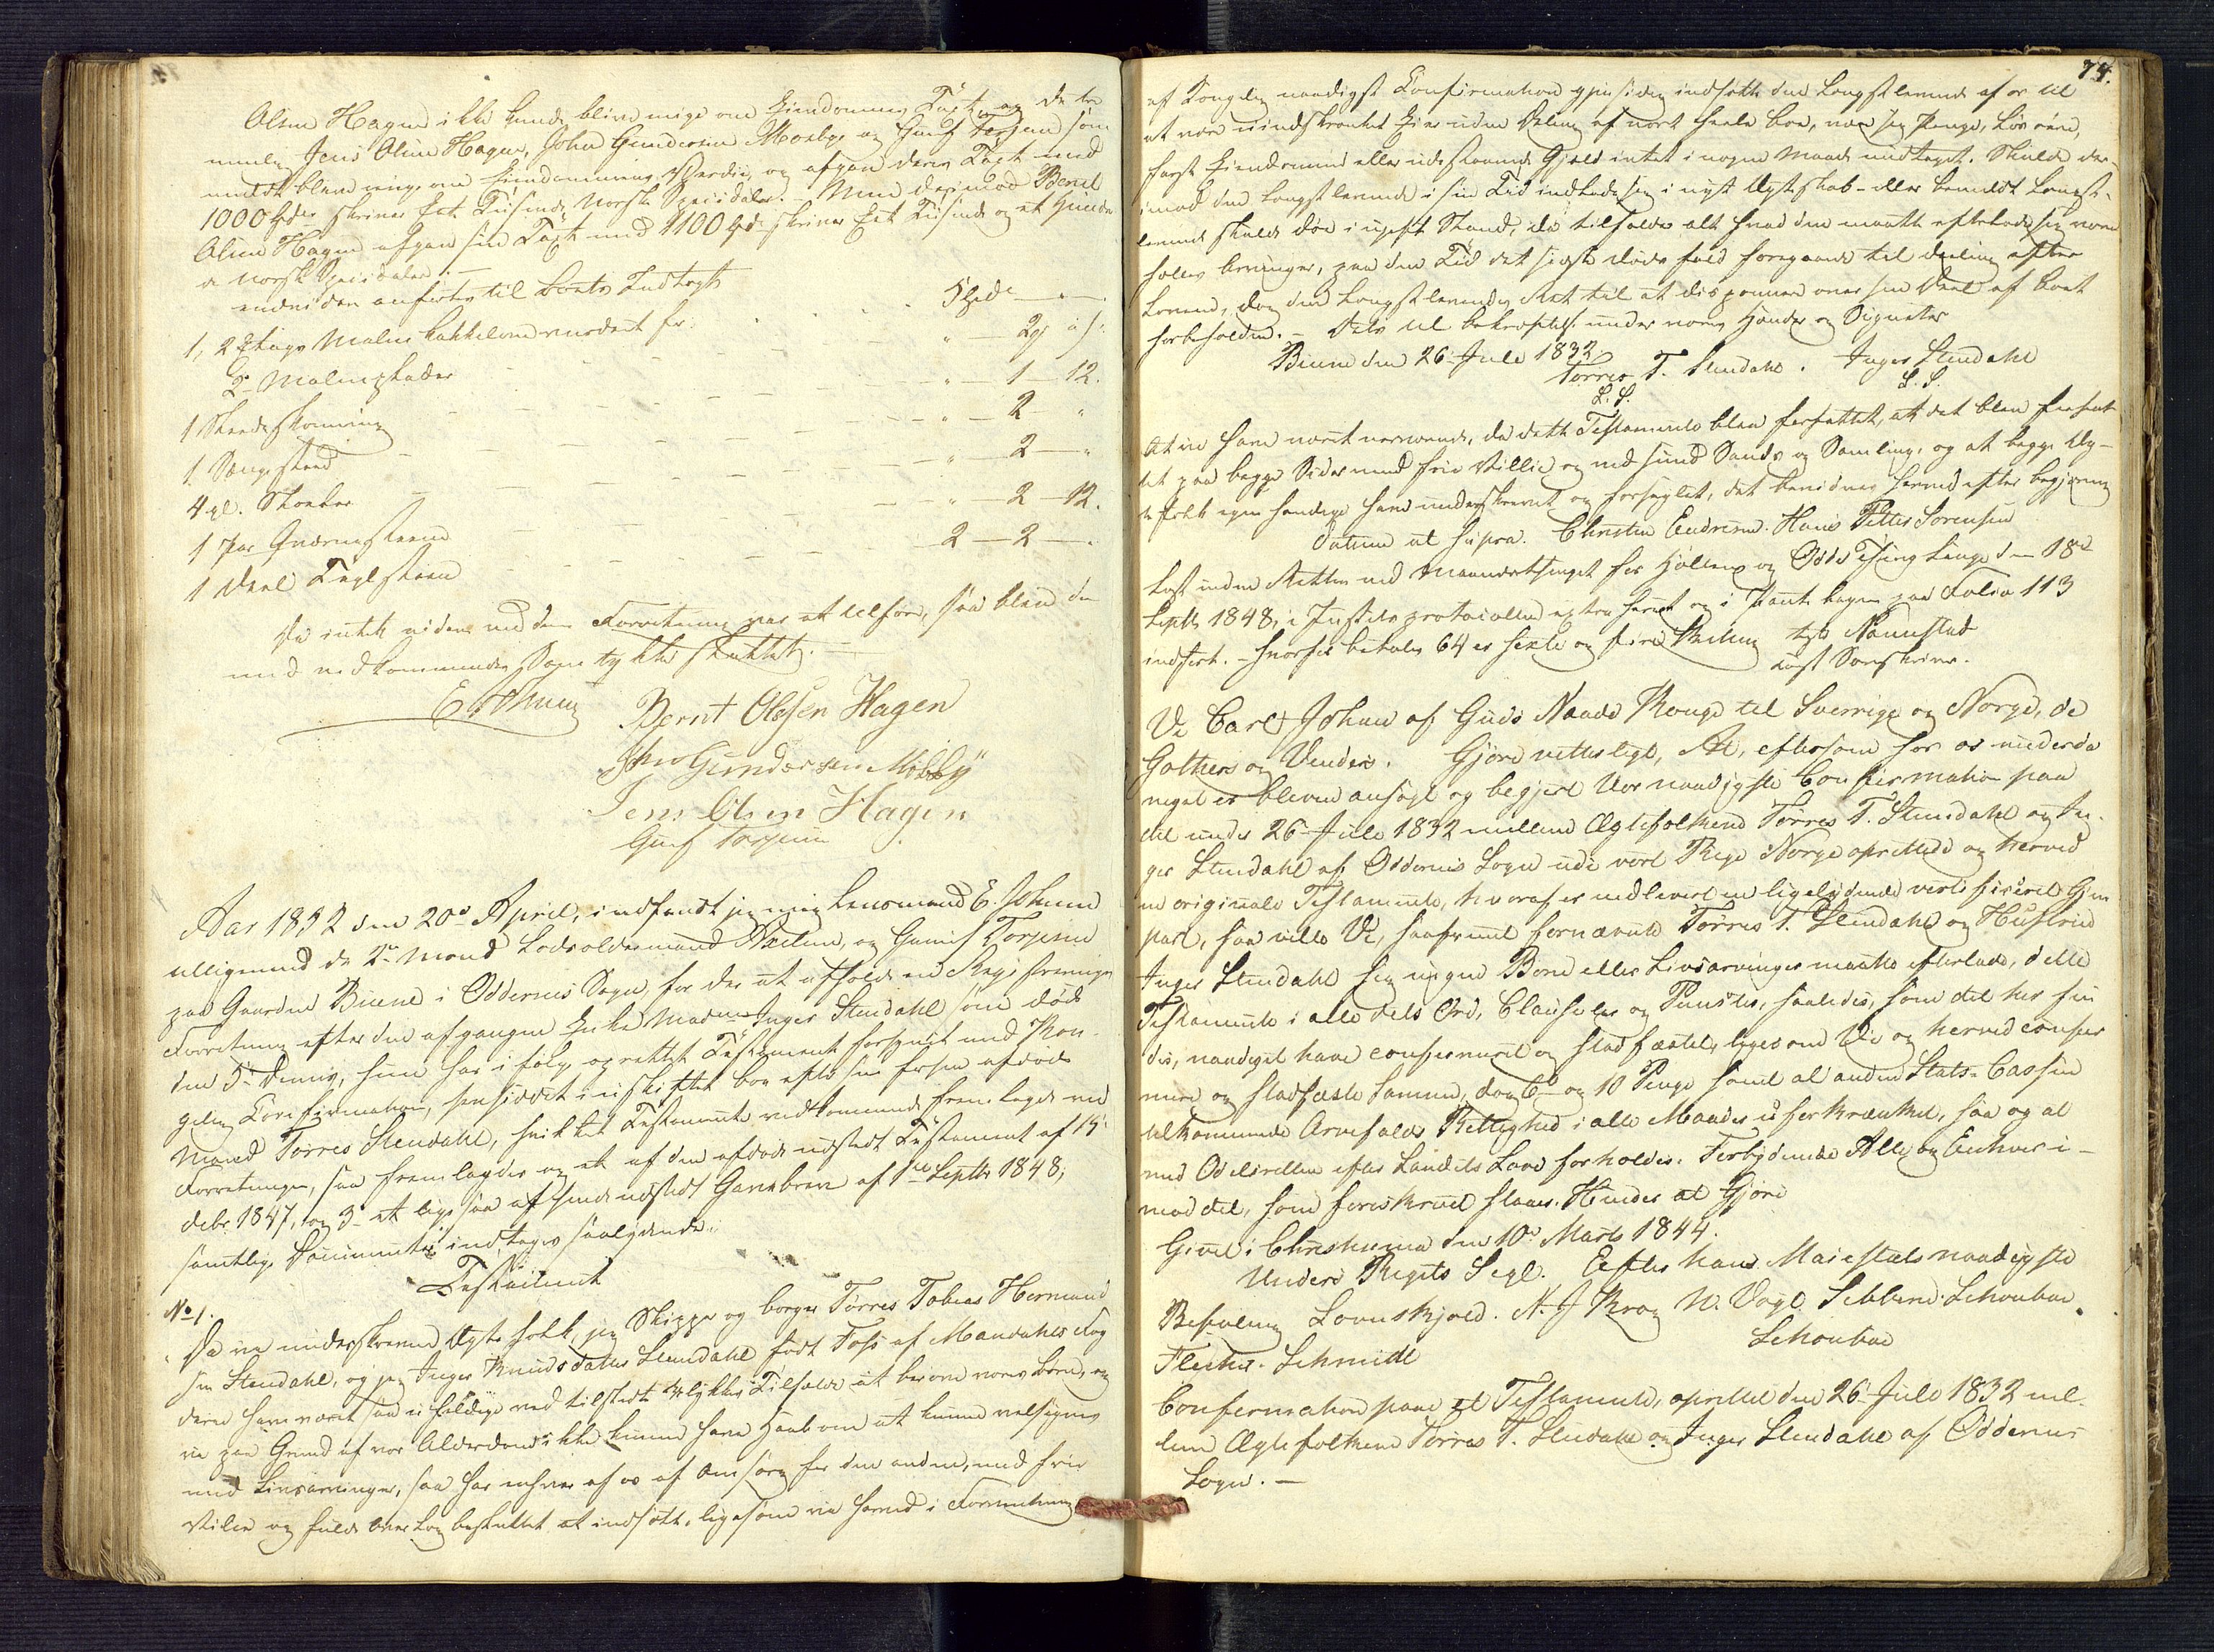 Olsen Hagen ikke kunde blive enige om Eiendommens Taxt, og de tre
nemlig Jens Olsen Hagen, John Gundersen Mosby og Gunf Torjesen som
meldt bleve enige om Eiendommens Værdie, og afgav deres Taxt med
1000 Spd skriver Eet Tusinde Norske Speciedaler. – Men derimod Bernt
Olsen Hagen afgav sin Taxt med 1100 Spd skriver Eet Tusinde og et Hundre
de Norsk Speciedaler. –
endvidere anførtes til Boets Indtægt
1, 2 Etages Malm Kakkelovn vurderet for . . . 5 Spd – " –
2 Malmgryder " – 2 ß
1 " – 1 – 12.
1 Sengested " – 2 – "
4 gl. Stoler " – 2 – "
1 Par Qværnsteene " – 2 – 12.
1 Deel Teglsteen 2 – 2 – "
Da intet videre ved denne Forretning var at tilføre, saa blev den
med vedkommendes Samtykke sluttet. –
E Johnsen
Bernt Olsen Hagen
John Gundersen Mosby
Jens Olsen Hagen
Gunf Torjesen
Aar 1852 den 20de April, indfandt jeg mig Lensmand E. Johnsen
tilligemed de 2de Mænd Lodsoldermand Nielsen, og Gunuf Torjesen
paa Gaarden Buene i Oddernes Sogn, for der at afholde en Registrerings
Forretning efter den afgangne Enke Madme Inger Stendahl som døde
den 5te dennes, hun har i følge oprettet Testament forsynet med Kon-
gelig Confirmation, hensiddet i uskiftet Boe efter sin forhen afdøde
Mand Tørres Stendahl, hvilket Testamente vedkommende fremlagde ved
Forretningen, saa fremlagdes og et af den afdøde udstedt Testament af 15
debr 1847, og 3. et ligesaa af hende udstedt Gavebrev af 1ste Septbr 1848,
samtlige Documenter indtages saalydende:
Testament
No 1.
Da vi underskrevne Ægtefolk, jeg Skipper og borger Tørres Tobias Hermand
sen Stendahl, og jeg Inger Knudsdatter Stendahl født Foss af Mandahls Fog
derie have været saa uheldige ved tilstødte Ulykkes Tilfælde at berøve vores Børn, og
vi paa Grund af vor Alderdom ikke kunne have Haab om at kunne velsignes
med Livsarvinger, saa har enhver af os af Omsorg for den anden, med frie
Villie og fuldt Overlæg besluttet at indsætte, ligesom vi herved i Forventning
74.
af Kongelig naadigst Confirmation gjensidig indsætte den Længstlevende af os til
at være uindskrænket Eier uden Deling af vort heele Boe, være sig Penge, Løsøre,
fast Eiendomme eller udestaaende Gjeld intet i nogen Maade undtaget. Skulde der-
imod den Længstlevende i sin Tid indlade sig i nyt Ægteskab – eller bemeldt Længst-
levende skulde døe i ugift Stand, da tilfalder alt hvad den maatte efterlade sig vores
fælles Arvinger, paa den Tid det sidste Døds fald foregaaer til deeling efter
Loven, dog den Længstlevendes Ret til at disponere over sin Deel af Boet
forbeholden. – Dette til bekræftelse under vores Hænder og Signeter
Buene den 26 Julii 1832.
Tørres T. Stendahl. Inger Stendahl
L. S. L. S.
At vi have været nærværende, da dette Testamente blev forfattet, at det blev fuldend-
tet paa begge Sider med frie Villie og ved sund Sands og Samling, og at begge Æg-
tefolk egenhændige have underskrevet og forseglet, det bevidnes herved efter begjæring
Datum ut supra. Christen Endresen. Hans Petter Sørensen
Læst inden Retten ved Maanedsthinget for Hølleng og Odds Thinglaug d. 18de
Septb 1848, i Justits protocollen extraheret og i Pantebogen paa Folio 113
indført. – Herfor betales 64 er sexti og fire Skilling tgb Naumstad
const Sorenskriver.
Vi Carl Johan af Guds Naade Konge til Sverrige og Norge, de
Gothers og Venders. Gjøre vitterligt, At, eftersom for os underda
nigst er bleven ansøgt og begjert Vor naadigste Confirmation paa
det under 26 Julii 1832 mellem Ægtefolkene Tørres T. Stendahl og In-
ger Stendahl af Oddernes Sogn udi vort Rige Norge oprettede og herved
in originale Testamente, hvoraf er medlevert en ligelydende verificeret Gjen
part, saa ville Vi, saafremt fornævnte Tørres T. Stendahl og Hustrue
Inger Stendahl sig ingen Børn eller Livsarvinger maatte efterlade, dette
Testamente i alle dets Ord, Clausuler og Puncter, saaledes, som det her fin
des, naadigst have confirmeret og stadfæstet, ligesom Vi og herved confir
mere og stadfæste samme, dog 6te og 10 Penge samt al anden Stats-Cassen
tilkommende Arvefalds Rettighed i alle Maader uforkrænket, saa og at
med Odelsretten efter Landets Love forholdes. Forbydende Alle og Enhver i-
mod det, som foreskrevet staaer. Hinder at Gjøre
Givet i Christiania den 10de Marts 1844.
Under Rigets Segl. Efter hans Maiestæts naadigste
Befaling Løvenskjold. N. J Krog W. Vogt. Sibbern. Schouboe
Fleischer. Schmidt Schouboe
Confirmation paa et Testamente, oprettet den 26 Julii 1832 mel-
lem Ægtefolkene Tørres T. Stendahl og Inger Stendahl af Oddernes
Sogn. –